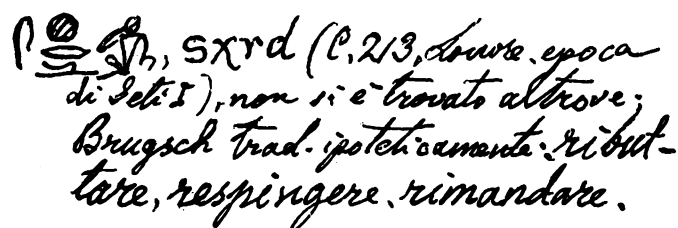 , sxrd (C, 213, Louvre, epoca
di Seti I), non si è trovato altrove;
Brugsch trad. ipoteticamente: ribut-
tare, respingere, rimandare.